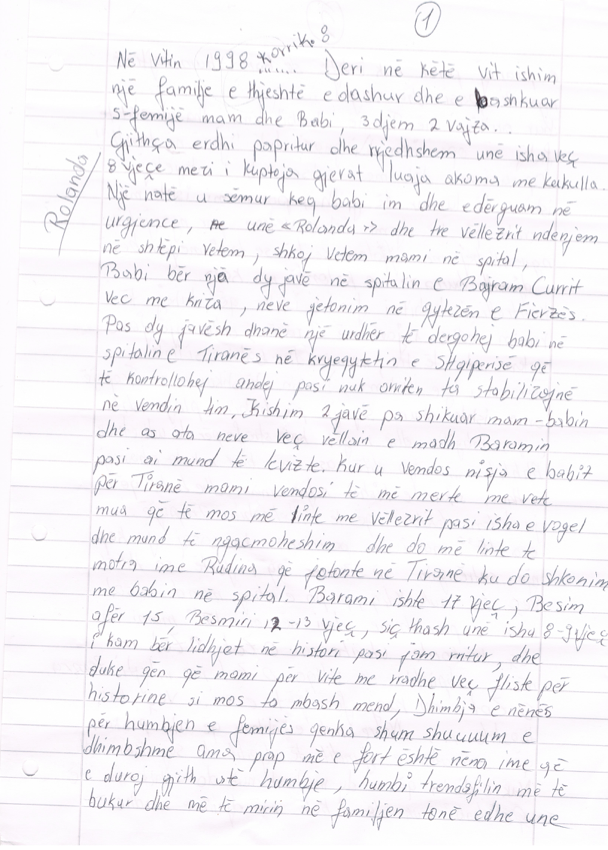 1
Në Vitin 1998 Korrik 8
....... Deri në këtë vit ishim
një familje e thjeshtë edashur dhe e bashkuar
5-femijë mam dhe Babi, 3 djem 2 vajza..
Gjithça erdhi papritur dhe rrjedhshem unë isha veç
8 vjeçe mezi i kuptoja gjerat luaja akoma me kukulla.
Rolanda
Një natë u sëmur keq babi im dhe edërguam në
urgjence, unë «Rolanda» dhe tre vëllezrit ndenjem
në shtëpi vetem, shkoj vetem mami në spital,
Babi bër një dy javë në spitalin e Bajram Currit
vec me kriza, neve jetonim në qytezën e Fierzës.
Pas dy javësh dhanë një urdhër të dergohej babi në
spitalin e Tiranës në kryeqytetin e Shqiperisë që
të kontrollohej andej pasi nuk arriten ta stabilizojnë
në vendin tim, Kishim 2 javë pa shikuar mam-babin
dhe as ata neve veç vëllain e madh Baramin
pasi ai mund të lëvizte. Kur u vendos nisja e babit
për Tiranë mami vendosi të më merte me vete
mua që të mos më linte me vëllezrit pasi isha e vogel
dhe mund të ngacmoheshim dhe do më linte te
motra ime Rudina që jetonte në Tiranë ku do shkonim
me babin në spital. Barami ishte 17 vjeç, Besim
afër 15, Besmiri 12-13 vjeç, siç thash unë isha 8-9vjeç
i kam bër lidhjet në histori pasi jam rritur, dhe
duke qën që mami për vite me rradhe veç fliste për
historine si mos ta mbash mend, Dhimbja e nënës
për humbjen e femijës qenka shum shuuuum e
dhimbshme ama prap më e fort është nëna ime që
e duroj gjith atë humbje, humbi trendafilin më të
bukur dhe më të mirin në familjen tonë edhe une